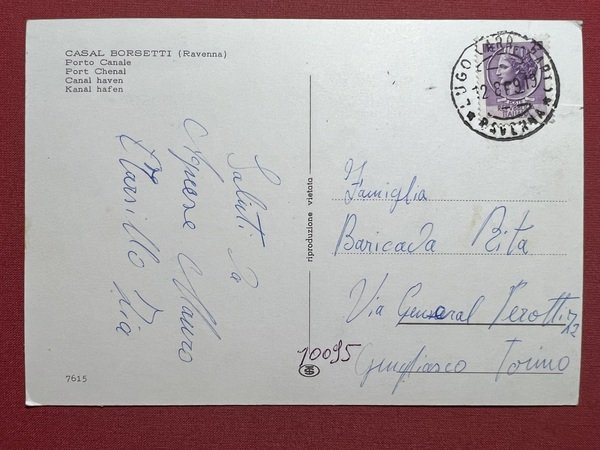 CASAL BORSETTI (Ravenna)
Porto Canale
Port Chenal
Canal haven
Kanal hafen
Saluti da
Agnese Mauro
Marsillo Pia
riproduzione vietata
7615
LUGO
12
RAVENNA
Famiglia
Baricada Rita
Via General Perotti 72
10095
Grugliasco Torino